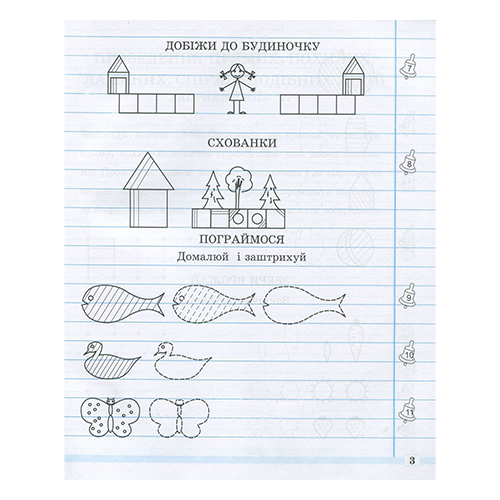 ДОБІЖИ ДО БУДИНОЧКУ
7
8
СХОВАНКИ
ПОГРАЙМОСЯ
Домалюй і заштрихуй
9
10
11
3